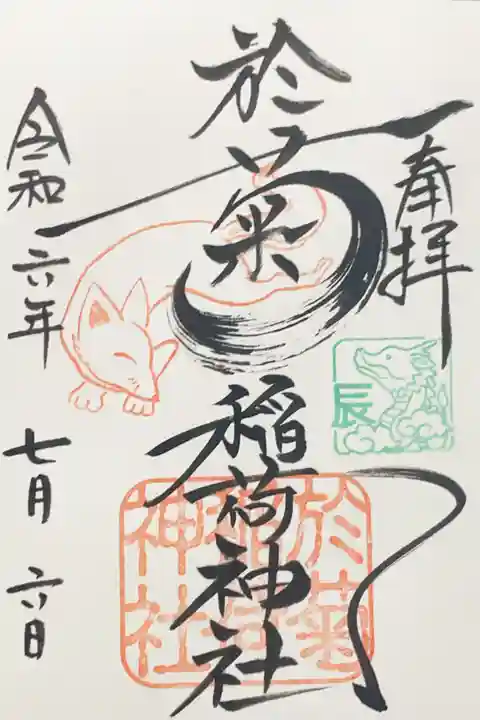 奉拝
辰
於菊稲荷神社
於菊
稲荷
神社
令和六年七月六日